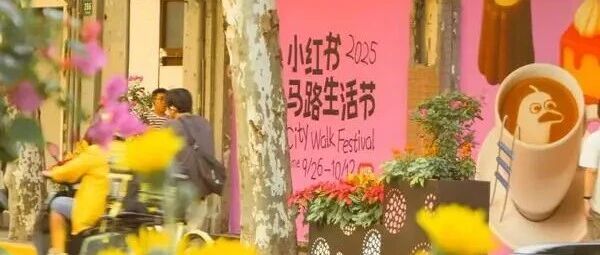 小红书2025
马路生活节
City Walk Festival
9/26-10/12
286